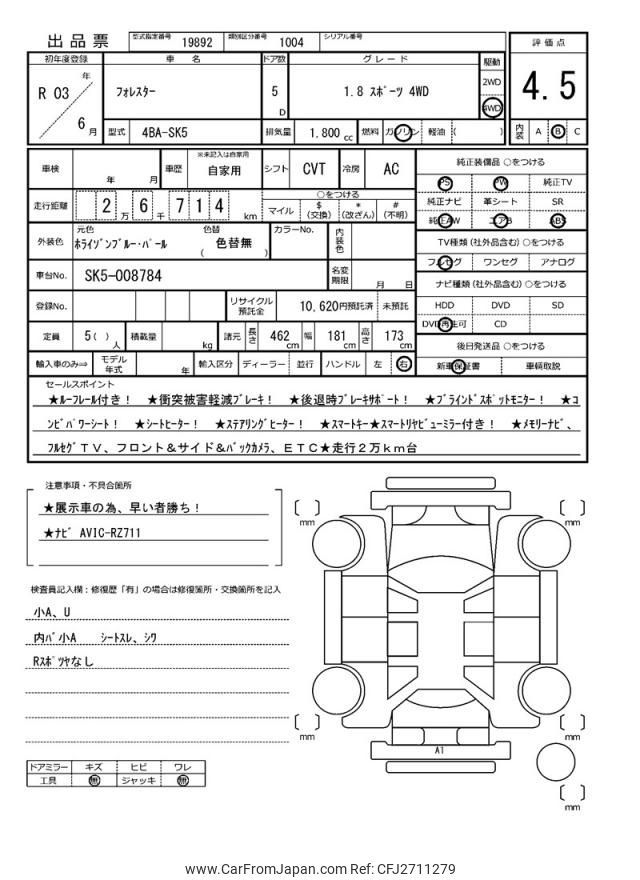 出品票
型式指定番号 19892 類別区分番号 1004 シリアル番号
初年度登録 車名 ドア数 グレード 駆動 評価点
R 03 年 6 月
フォレスター
5 D
1.8 スポーツ 4WD
2WD
4WD
4.5
型式 4BA-SK5 排気量 1,800 cc 燃料 ガソリン 軽油 ( )
内装 A B C
車検 年 月 車歴 ※未記入は自家用 自家用 シフト CVT 冷房 AC
走行距離 2 万 6 千 7 1 4 km
○をつける
マイル $(交換) *(改ざん) #(不明)
外装色 元色 ホライゾンブルー・パール 色替 ( 色替無 ) カラーNo. 内装色
車台No. SK5-008784 名変期限 月 日
登録No. リサイクル預託金 10,620円預託済 未預託
定員 5 ( ) 人 積載量 kg 諸元 長さ 462 cm 幅 181 cm 高さ 173 cm
輸入車のみ⇒ モデル年式 年 輸入区分 ディーラー 並行 ハンドル 左 右
純正装備品 ○をつける
PS PW 純正TV
純正ナビ 革シート SR
純正AW エアB ABS
TV種類(社外品含む)○をつける
フルセグ ワンセグ アナログ
ナビ種類(社外品含む)○をつける
HDD DVD SD
DVD再生可 CD
後日発送品 ○をつける
新車保証書 車輌取説
セールスポイント
★ルーフレール付き! ★衝突被害軽減ブレーキ! ★後退時ブレーキサポート! ★ブラインドスポットモニター! ★コ
ンビパワーシート! ★シートヒーター! ★ステアリングヒーター! ★スマートキー★スマートリヤビューミラー付き! ★メモリーナビ、
フルセグTV、フロント&サイド&バックカメラ、ETC★走行2万km台
注意事項・不具合箇所
★展示車の為、早い者勝ち!
★ナビ AVIC-RZ711
検査員記入欄:修復歴「有」の場合は修復箇所・交換箇所を記入
小A、U
内パ小A シートスレ、シワ
Rスポツヤなし
mm
mm
mm
mm
A1
mm
ドアミラー キズ ヒビ ワレ
工具 無 ジャッキ 無
www.CarFromJapan.com Ref: CFJ2711279